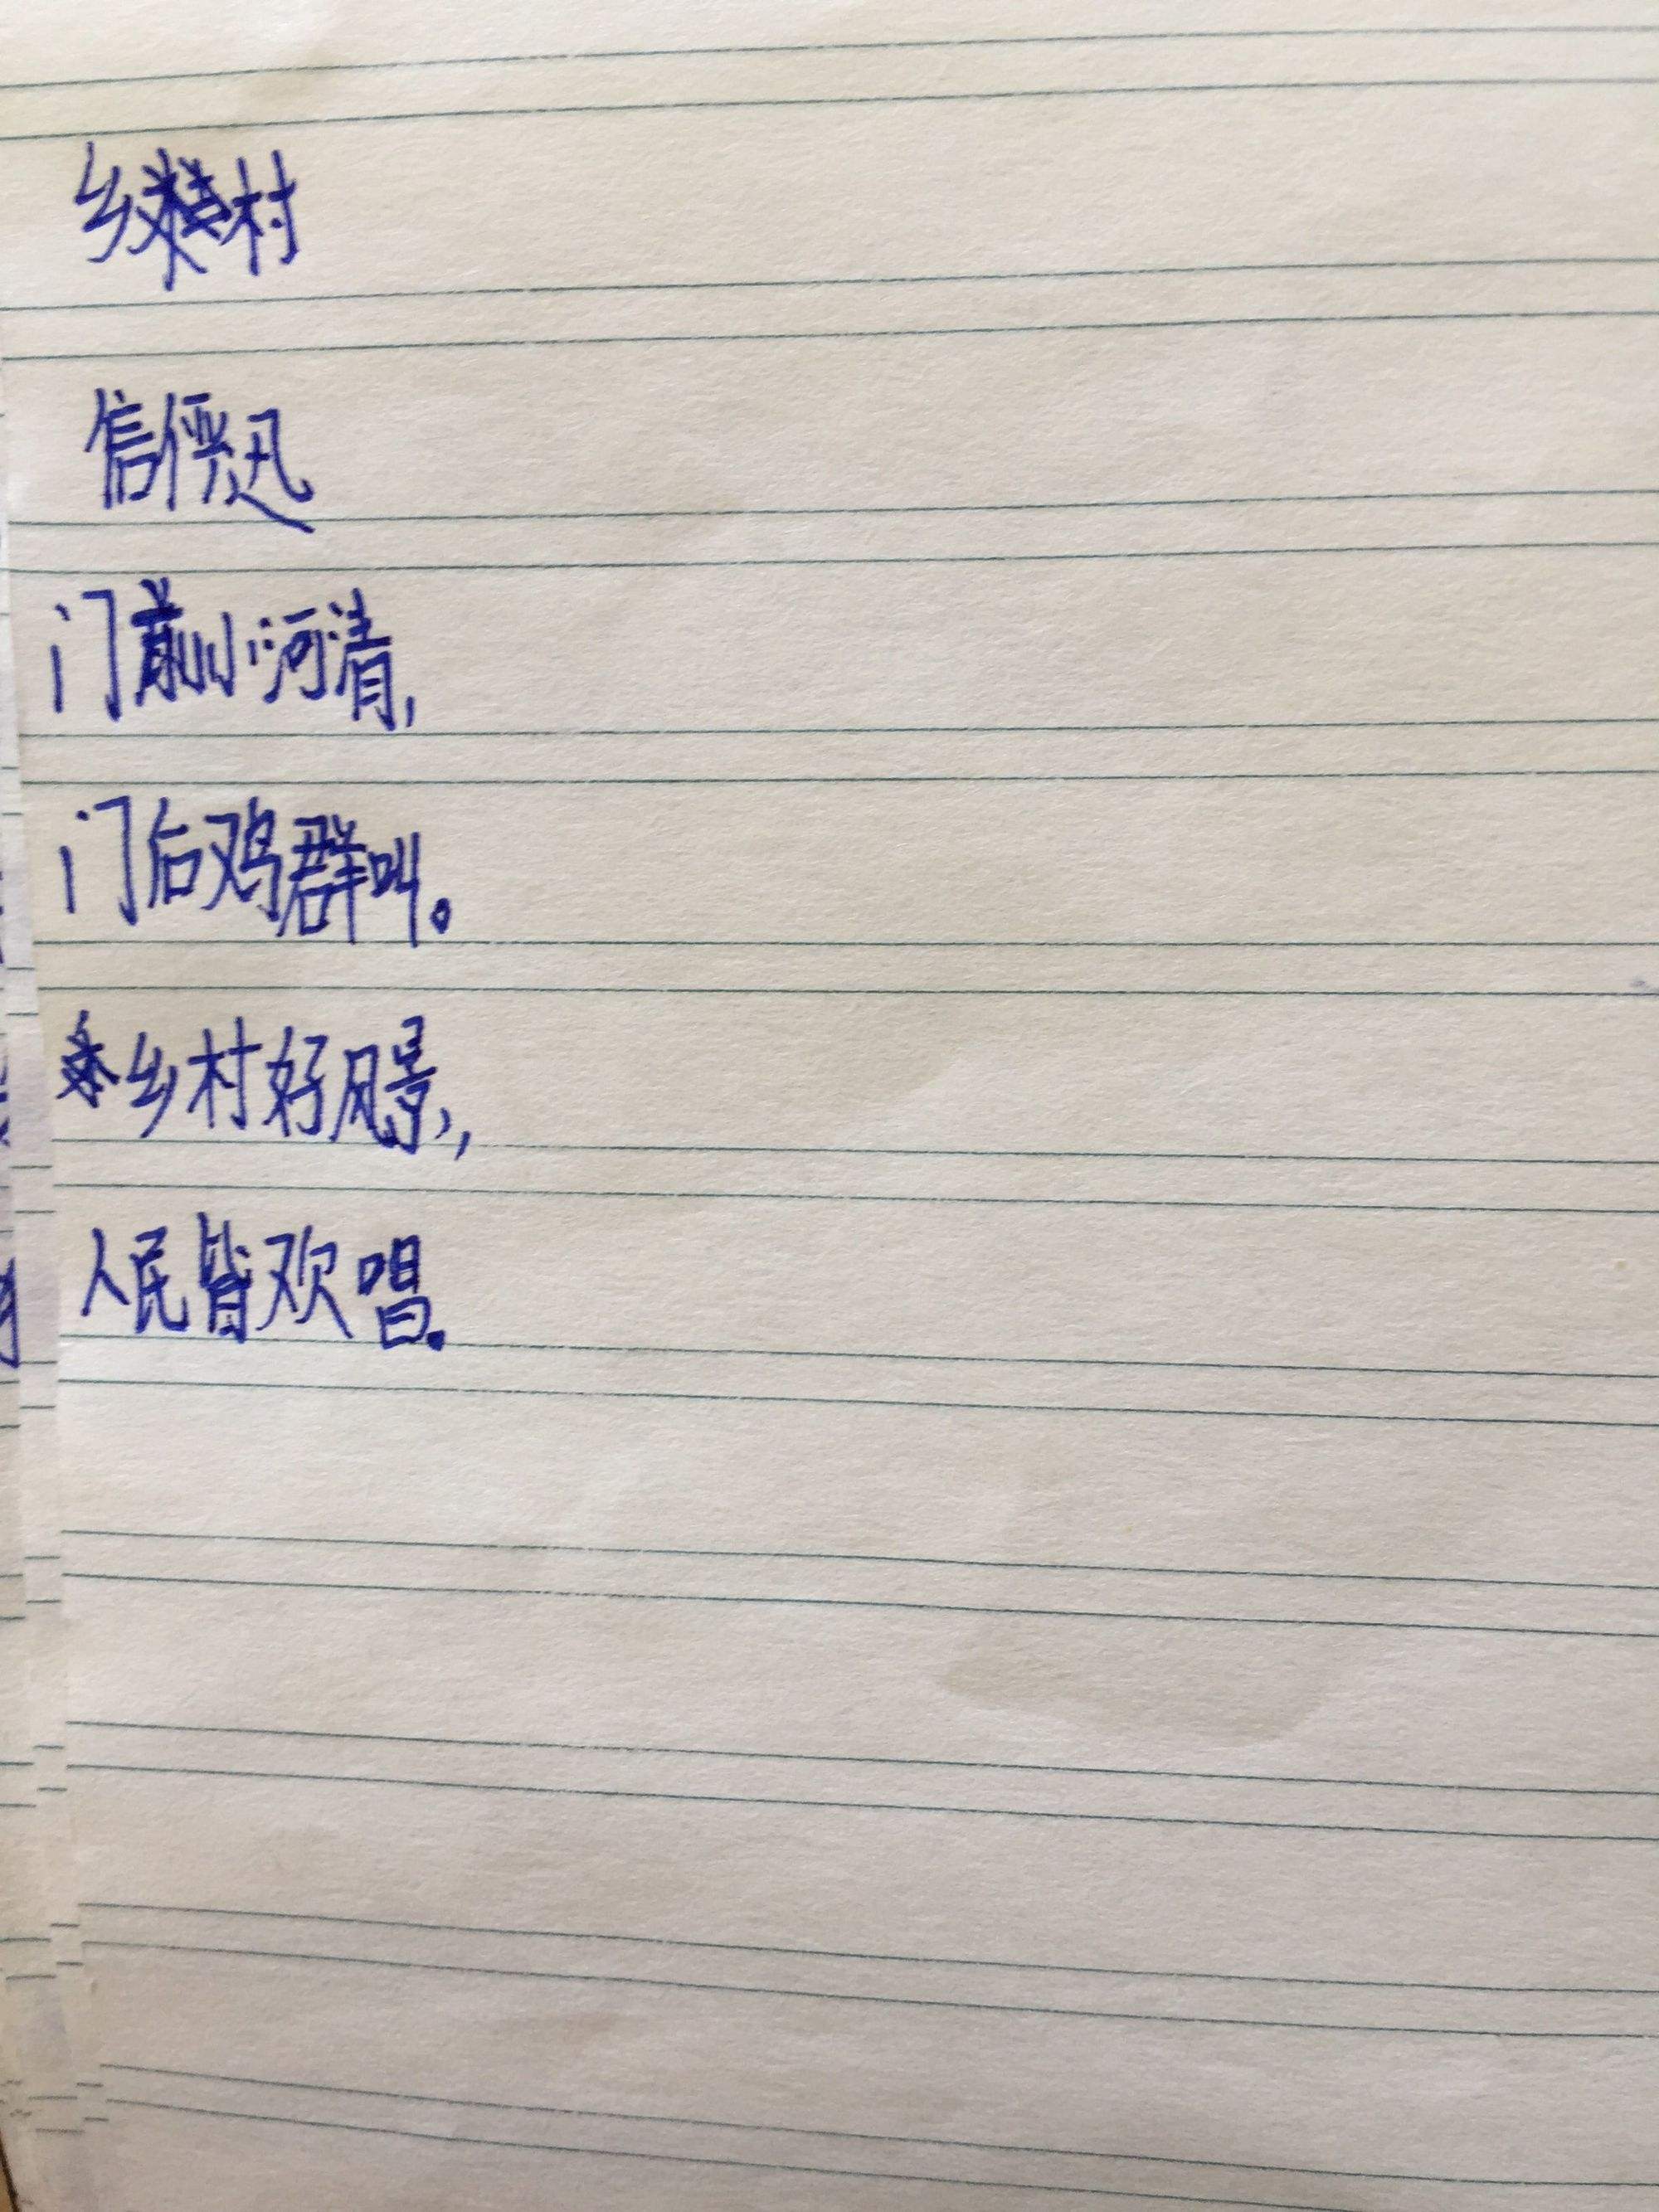 乡村
信
门前小河清，
门后鸡群叫。
乡村好风景，
人民皆欢唱。